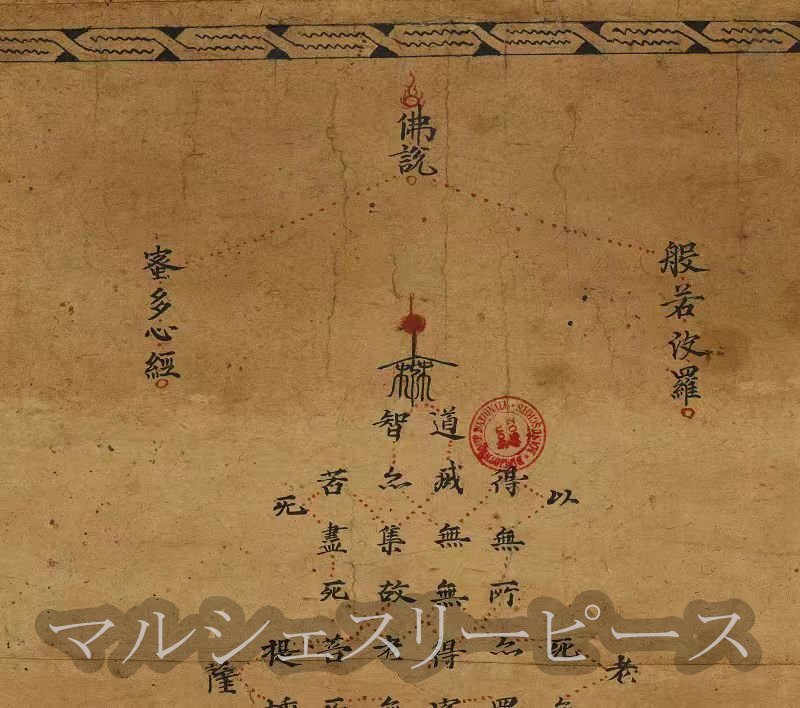 佛說
般若波羅
蜜多心經
老
以死
得無所亦羅
道滅無無得
智亦集故
苦盡死苦死
死提
薩
マルシェスリーピース